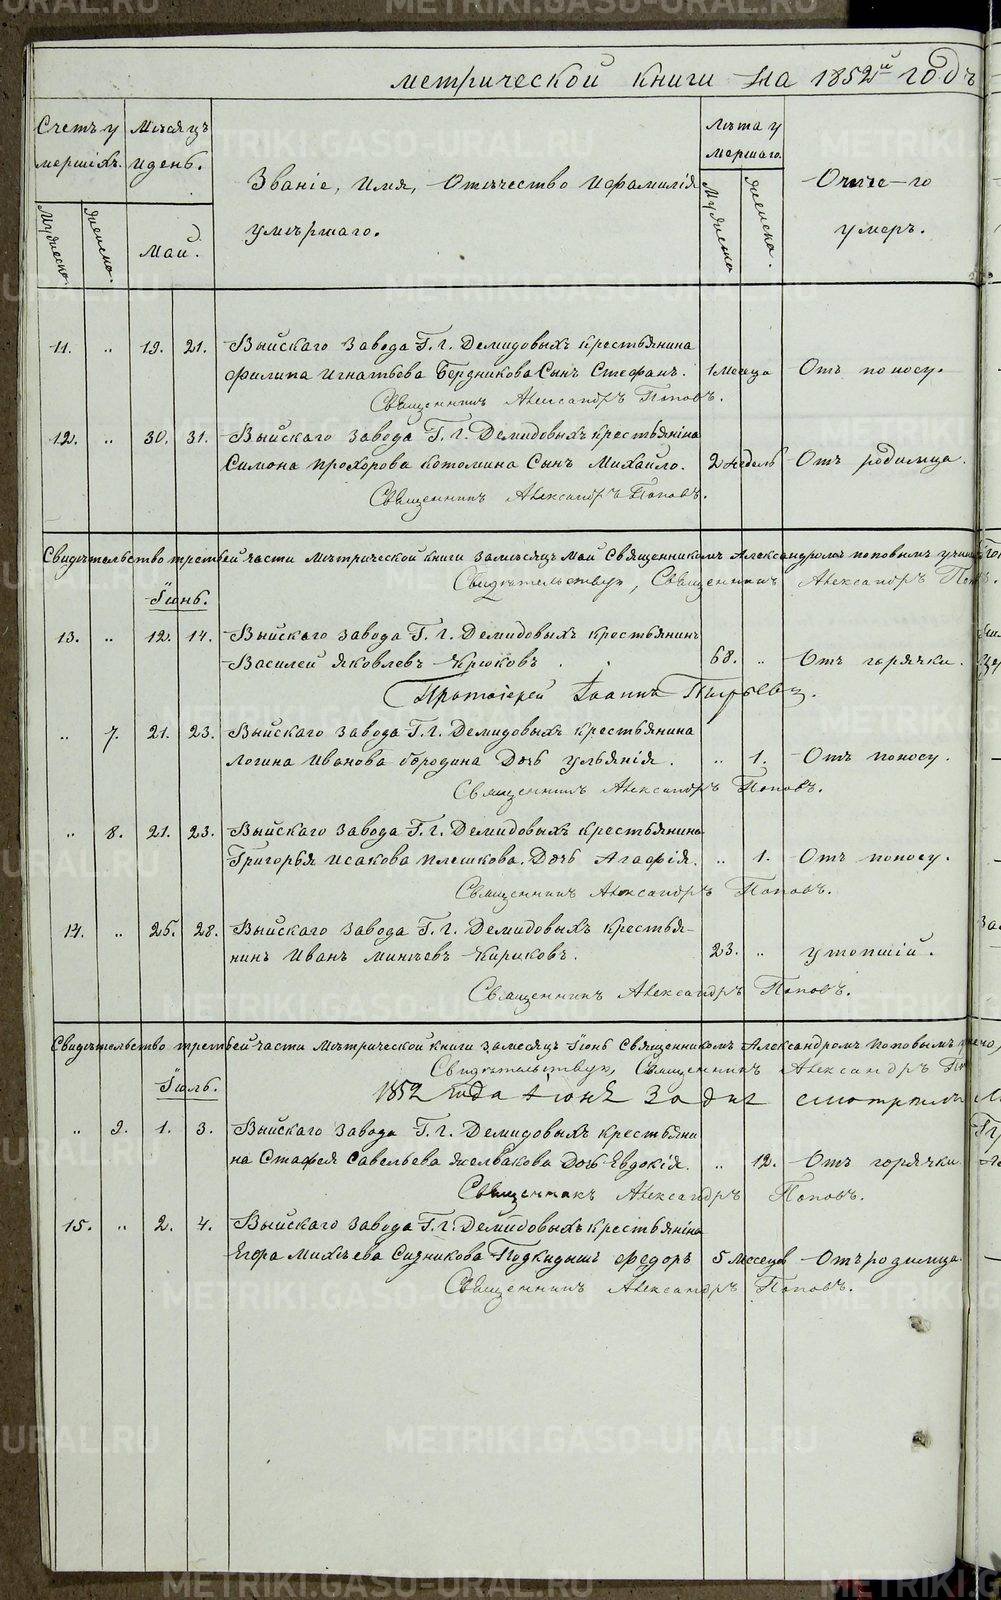 метрической книги на 1852й годъ
Счетъ умершіхъ.
Мѣсяцъ идень.
Званіе, Имя, Отечество Ифамилія умѣршаго.
Лѣта умершаго.
Отчего умеръ.
Мужеска
Женска.
Май.
Мужеска
Женска.
11. „ 19. 21. Выйскаго завода Г. г. Демидовыхъ крестьянина
Филипа Игнатьева Бердникова Сынъ Стефанъ. 1 месеца Отъ поносу.
Священникъ Александръ Поповъ.
12. „ 30. 31. Выйскаго завода Г. г. Демидовыхъ крестьяніна
Симона прохорова котомина Сынъ Михайло. 2 недель Отъ родимца.
Священникъ Александръ Поповъ.
Свидѣтельство третьей части Мѣтрической книги замѣсяцъ Май Священникомъ Александромъ поповымъ
Свидѣтельствую, Священникъ Александръ
Іюнь.
13. „ 12. 14. Выйскаго завода Г. г. Демидовыхъ крестьянинъ
Василей яковлевъ Крюковъ. 68. „ Отъ горячки.
Протоіерей Іоаннъ
„ 7. 21. 23. Выйскаго завода Г. г. Демидовыхъ крестьянина
Логина Иванова бородина Дочь ульянія. „ 1. Отъ поносу.
Священникъ Александръ Поповъ.
„ 8. 21. 23. Выйскаго завода Г. г. Демидовыхъ крестьянина
Григорья исакова плешкова. Дочь Агафія. „ 1. Отъ поносу.
Священникъ Александръ Поповъ.
14. „ 25. 28. Выйскаго завода Г. г. Демидовыхъ крестья-
нинъ Иванъ Кириковъ. 23. „ утопшій.
Священникъ Александръ Поповъ.
Свидѣтельство третьей части Мѣтрической книги замесяцъ Іюнь Священникомъ Александромъ поповымъ
Свидѣтельствую, Священникъ Александръ
Іюль.
1852 года Іюня 30 дня смотрѣлъ
„ 9. 1. 3. Выйскаго завода Г. г. Демидовыхъ крестьяни
на Стафея Савельева желвакова Дочь Евдокія. „ 12. Отъ горячки
Священникъ Александръ Поповъ.
15. „ 2. 4. Выйскаго завода Г. г. Демидовыхъ крестьяніна
Егора Михѣева Ситникова Подкидышъ Федоръ 5 месецов Отъ родимца.
Священникъ Александръ Поповъ.
METRIKI.GASO-URAL.RU